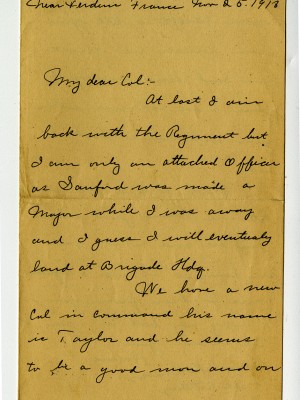 Near Verdun France Nov 25. 1918
My dear Col:-
At last I am
back with the Regiment but
I am only an attached Officer
as Sanford was made a
Major while I was away
and I guess I will eventualy
land at Brigade Hdq.
We have a new
Col in command his name
is Taylor and he seems
to be a good man and on